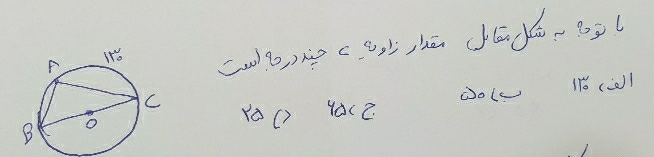 با توجه به شکل مقابل مقدار زاویه C چند درجه است
الف) ۱۳۰ ب) ۵۰ ج) ۶۵ د) ۲۵
۱۳۰
A
C
B
O